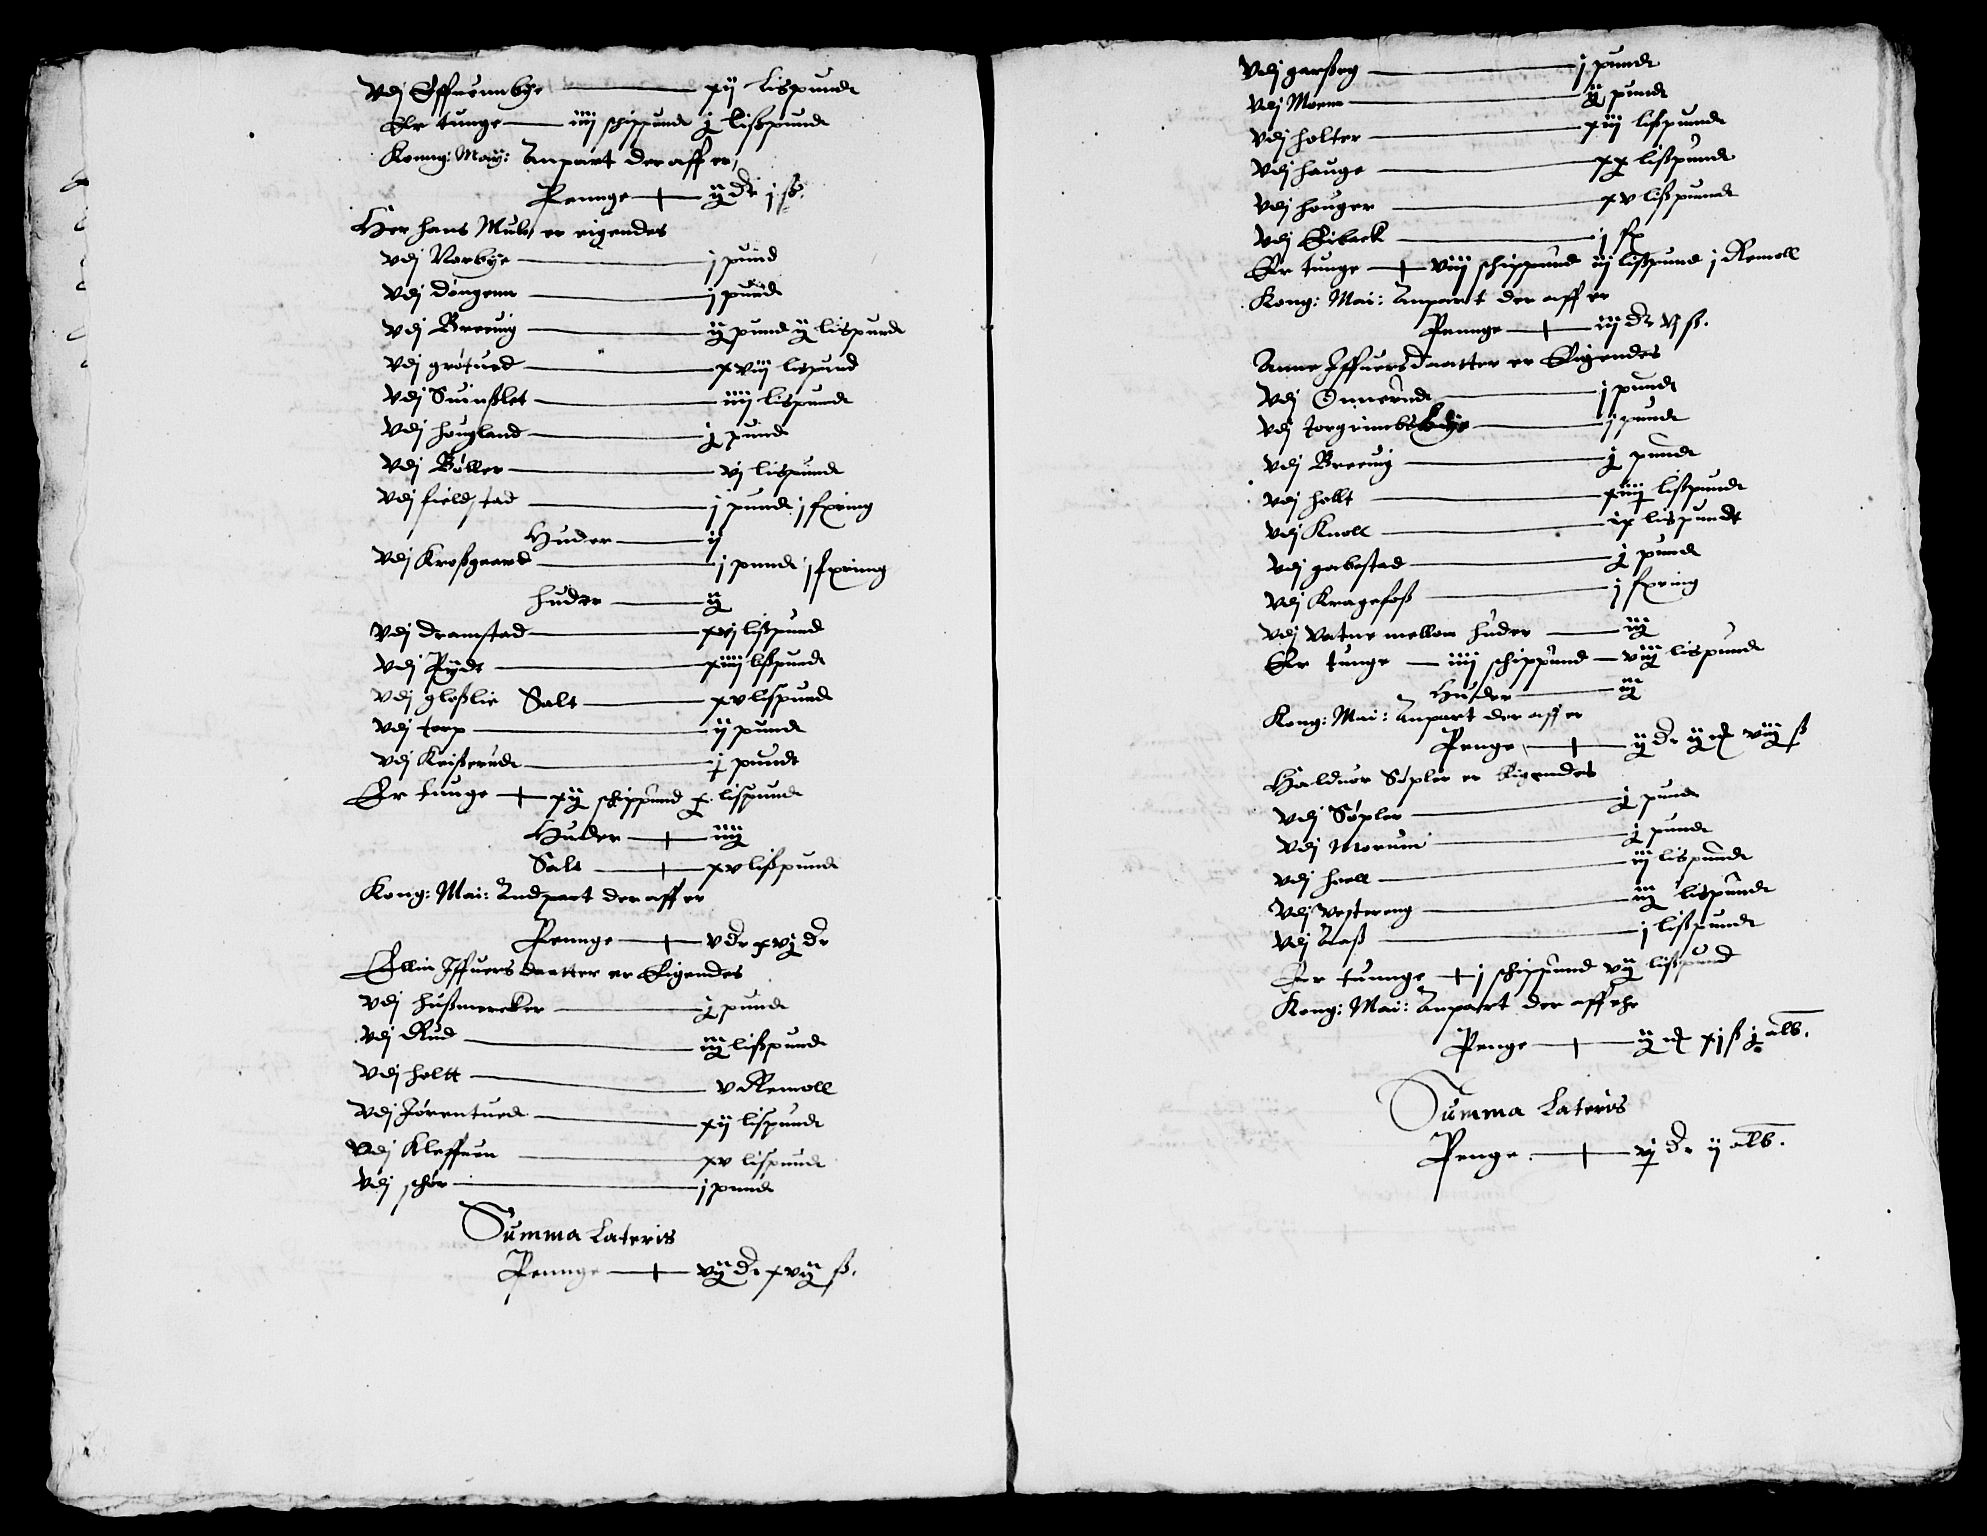 Vdj Øffuerinbye — xij lispundt
Er tunge — iiij schippundt j lißpundt
Konng: May: Anpart der aff er,
Pennge — ij dr j ß.
Her Hans Mule, er eigendes
Vdj Norbye — j pund
Vdj Dongenn — j pundt
Vdj Breeuig — ij pund ij lispundt
Vdj grøtued — xviij lispund
Vdj Suinßlet — iiij lispundt
Vdj hougland — j pund
Vdj Bøller — vj lispundt
Vdj fieldstad — j pundt j fxring
Huder — ij
Vdj Kroßgaard — j pundt j fxring
huder — ij
Vdj dramstad — xvj lißpund
Vdj Rydt — xiiij lißpundt
Vdj gloßlie Salt — xv lispundt
Vdj torp — ij pundt
Vdj Keißerudt — j pundt
Er tunge — xij schippund x lispundt
Huder — iiij
Salt — xv lißpundt
Kong: Mai: Andpart der aff er
Pennge — v dr xvj dr
Ellin Iffuersdaatter er Eigendes
Vdj hußmercker — j pundt
Vdj Rud — iij lißpundt
Vdj holtt — v Remoll
Vdj Jørentued — xij lispundt
Vdj Kleffuen — xv lispundt
Vdj schør — j pundt
Summa Lateris
Pennge — vij dr xvij ß.
Vdj garßeg — j pundt
Vdj Moenn — ij pundt
Vdj holter — xiij lißpundt
Vdj hauge — xx lißpundt
Vdj houger — xv lißpundt
Vdj Eiback — j fx
Er tunge — viij schippund iij lißpund j Remoll
Kong: Mai: Anpart der aff er
Pennge — iij dr vj ß.
Anne Iffuersdaatter er Eigendes
Vdj Onnerudt — j pundt
Vdj torgrimbsbye — j pundt
Vdj Breeuig — j pundt
Vdj hollt — xiiij lißpundt
Vdj Knoll — ix lispundt
Vdj gabestad — j pundt
Vdj Kragefoß — j fxring
Vdj Vatne mellom huder — iij
Er tunge — iiij schippund — viij lispundt
Huder — iij
Kong: Mai: Anpart der aff er
Penge — ij dr ij mk viij ß
Halduor Søpler er Eigendes
Vdj Søpler — j pundt
Vdj Morum — j pundt
Vdj hoell — iij lispundt
Vdj Vestereng — iij lispundt
Vdj Aaß — j lißpundt
Er tunnge — j schippund vij lißpund
Kong: Mai: Anpart der aff ehr
Penge — ij mk xj ß j alb.
Summa Lateris
Penge — vj dr ij alb.